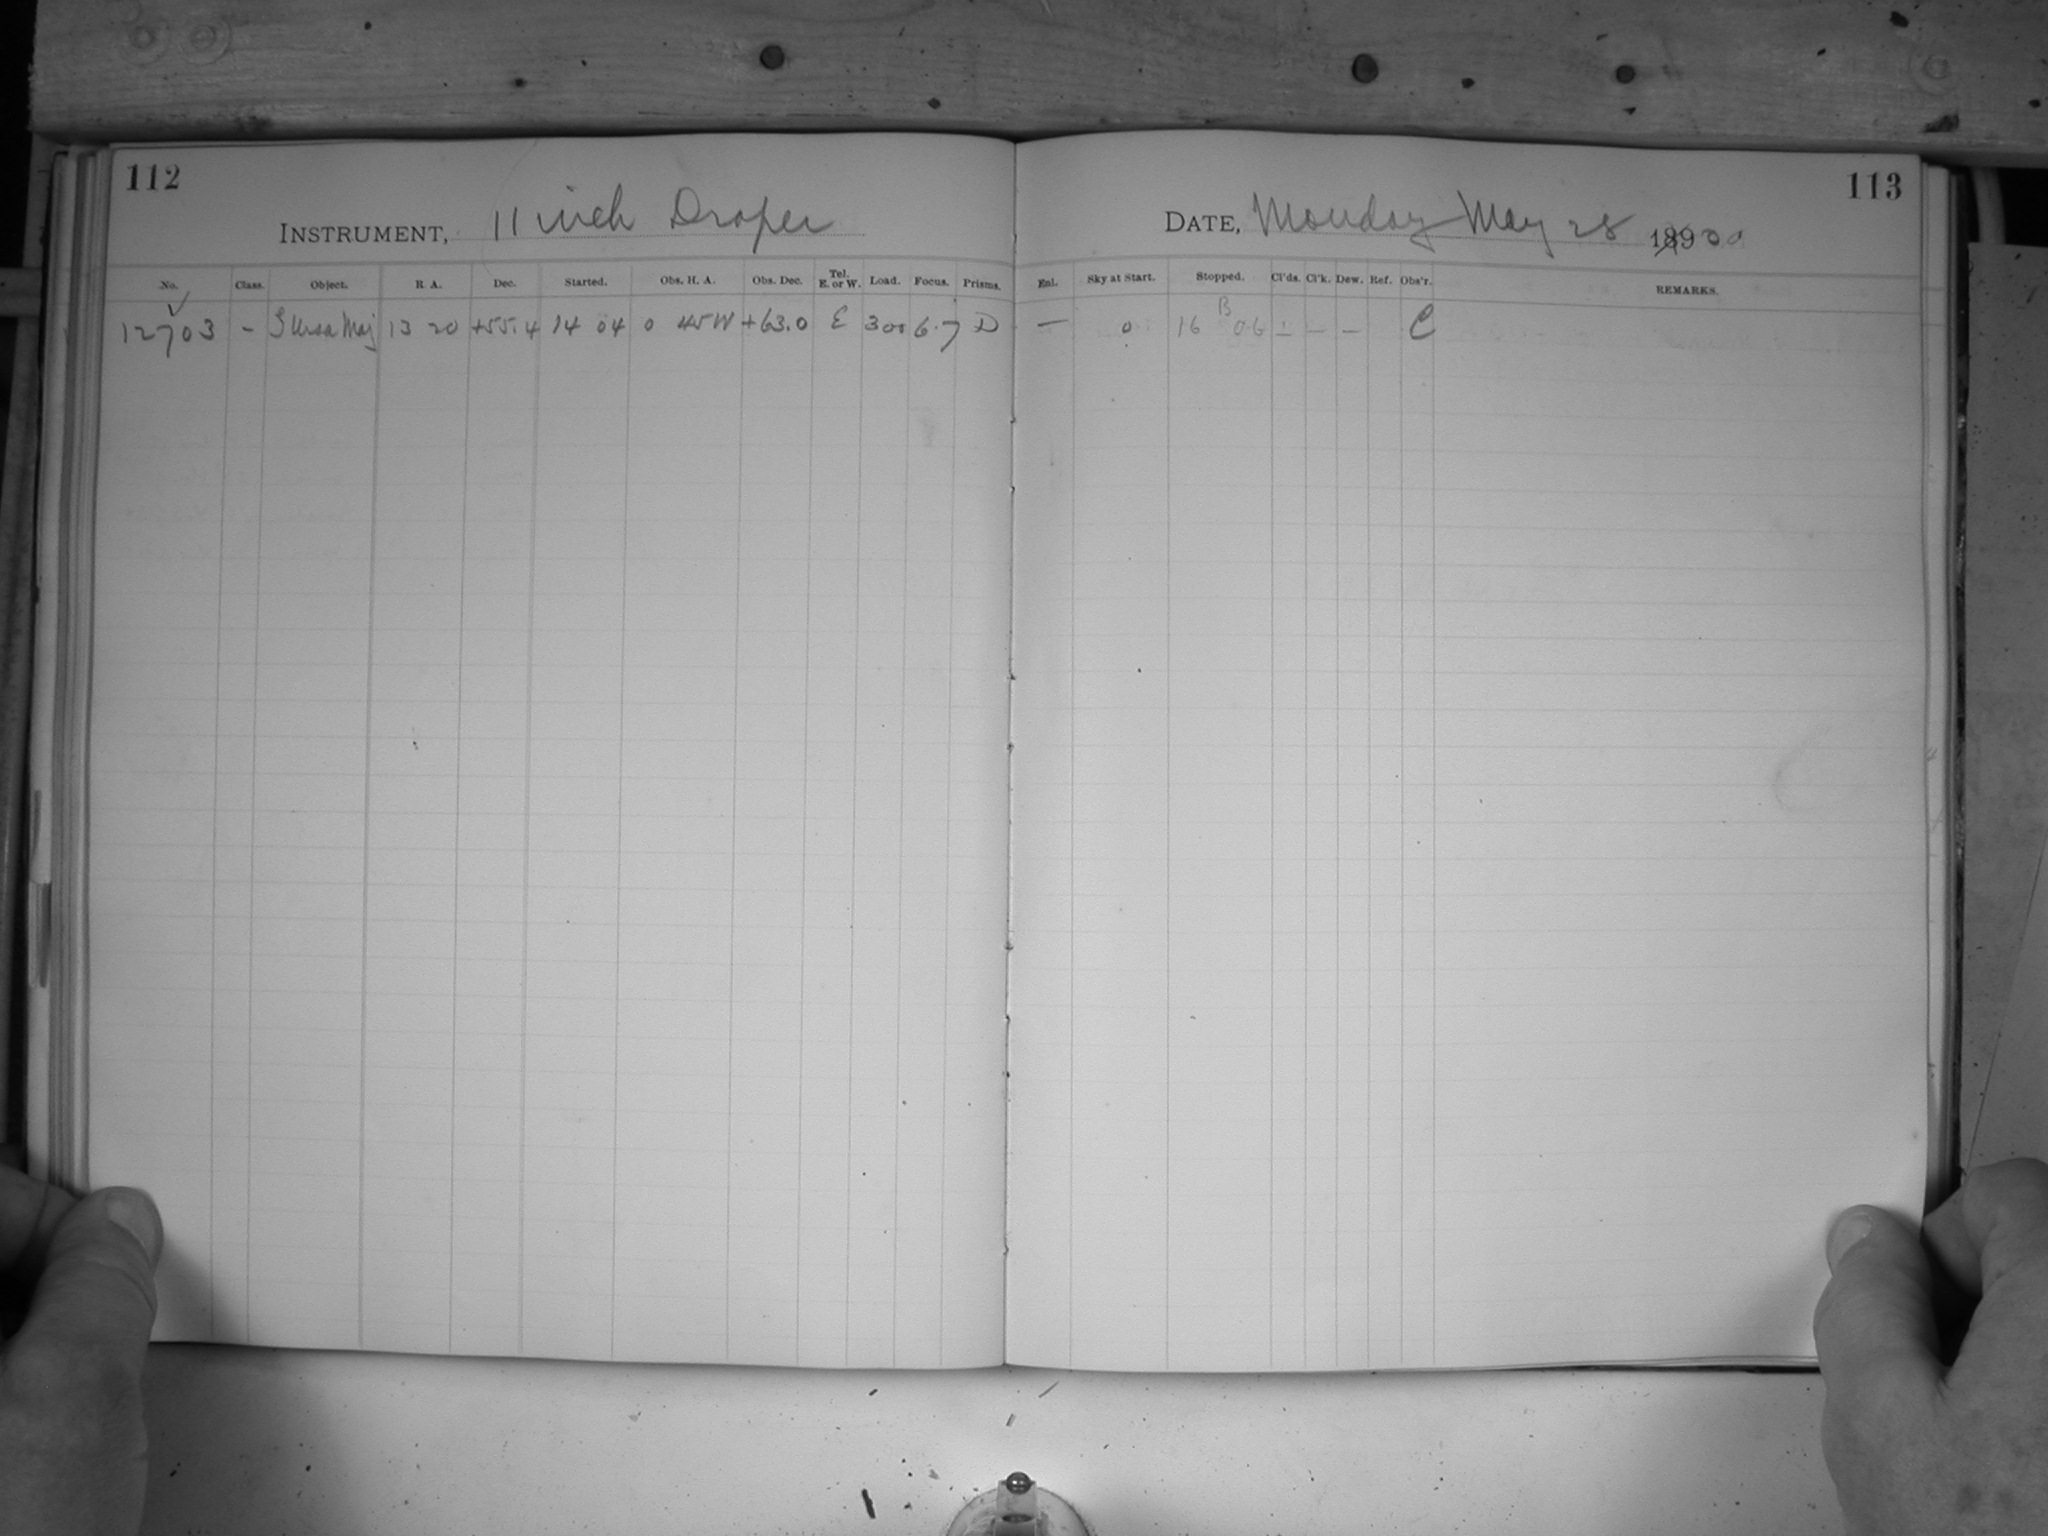 112
INSTRUMENT, 11 inch Draper
No. Class. Object. R. A. Dec. Started. Obs. H. A. Obs. Dec. Tel. E. or W. Load. Focus. Prisms.
✓
12703 – ζ Ursa Maj 13 20 +55.4 14 04 0 45W +63.0 E 300 6.7 D
113
DATE, Monday May 28 1890 00
Enl. Sky at Start. Stopped. Cl'ds. Cl'k. Dew. Ref. Obs'r. REMARKS.
B
— 0 16 06 – – – C